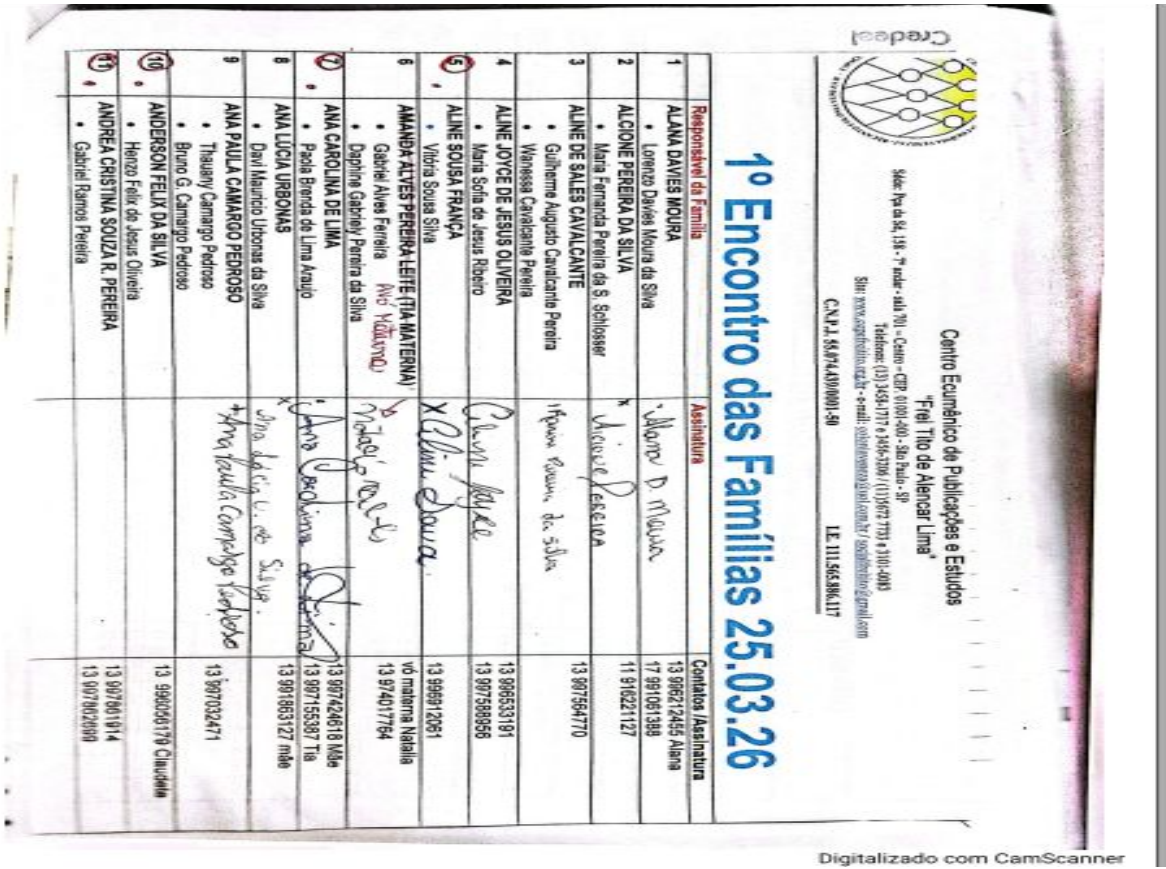 Credeal
Centro Ecumênico de Publicações e Estudos
"Frei Tito de Alencar Lima"
Sede: Pça da Sé, 158 - 7º andar - sala 701 – Centro – CEP. 01001-000 - São Paulo - SP
Telefones: (13) 3458-1717 e 3456-3206 / (11)5672 7733 e 3101-0083
C.N.P.J. 55.074.439/0001-50 I.E. 111.565.886.117
1º Encontro das Famílias 25.03.26
Responsável da Família Assinatura Contatos /Assinatura
1 ALANA DAVIES MOURA
• Lorenzo Davies Moura da Silva
Alana D. Moura
13 996212455 Alana
17 991081388
2 ALCIONE PEREIRA DA SILVA
• Maria Fernanda Pereira da S. Schlosser
x Alcione Pereira
11 916221127
3 ALINE DE SALES CAVALCANTE
• Guilherme Augusto Cavalcante Pereira
• Wanessa Cavalcante Pereira
da Silva
13 997564770
4 ALINE JOYCE DE JESUS OLIVEIRA
• Maria Sofia de Jesus Ribeiro
Aline Joyce
13 996533191
13 997588956
5 ALINE SOUSA FRANÇA
• Vitória Sousa Silva
X Aline Sousa.
13 996912061
6 AMANDA ALVES PEREIRA LEITE (TIA MATERNA)
• Gabriel Alves Ferreira
Avó Materna
Daphine Gabriely Pereira da Silva
vó materna Natalia
13 974017764
7 ANA CAROLINA DE LIMA
• Paola Brenda de Lima Araujo
Ana Carolina de Lima
13 997424618 Mãe
13 997155387 Tia
8 ANA LÚCIA URBONAS
• Davi Mauricio Urbonas da Silva
x Ana Lúcia U. da Silva.
13 991863127 mãe
9 ANA PAULA CAMARGO PEDROSO
• Thauany Camargo Pedroso
• Bruno G. Camargo Pedroso
Ana Paula Camargo Pedroso
13 997032471
10 ANDERSON FELIX DA SILVA
• Henzo Felix de Jesus Oliveira
13 996056179 Claudete
11 ANDREA CRISTINA SOUZA R. PEREIRA
• Gabriel Ramos Pereira
13 997861914
13 997802699
Digitalizado com CamScanner